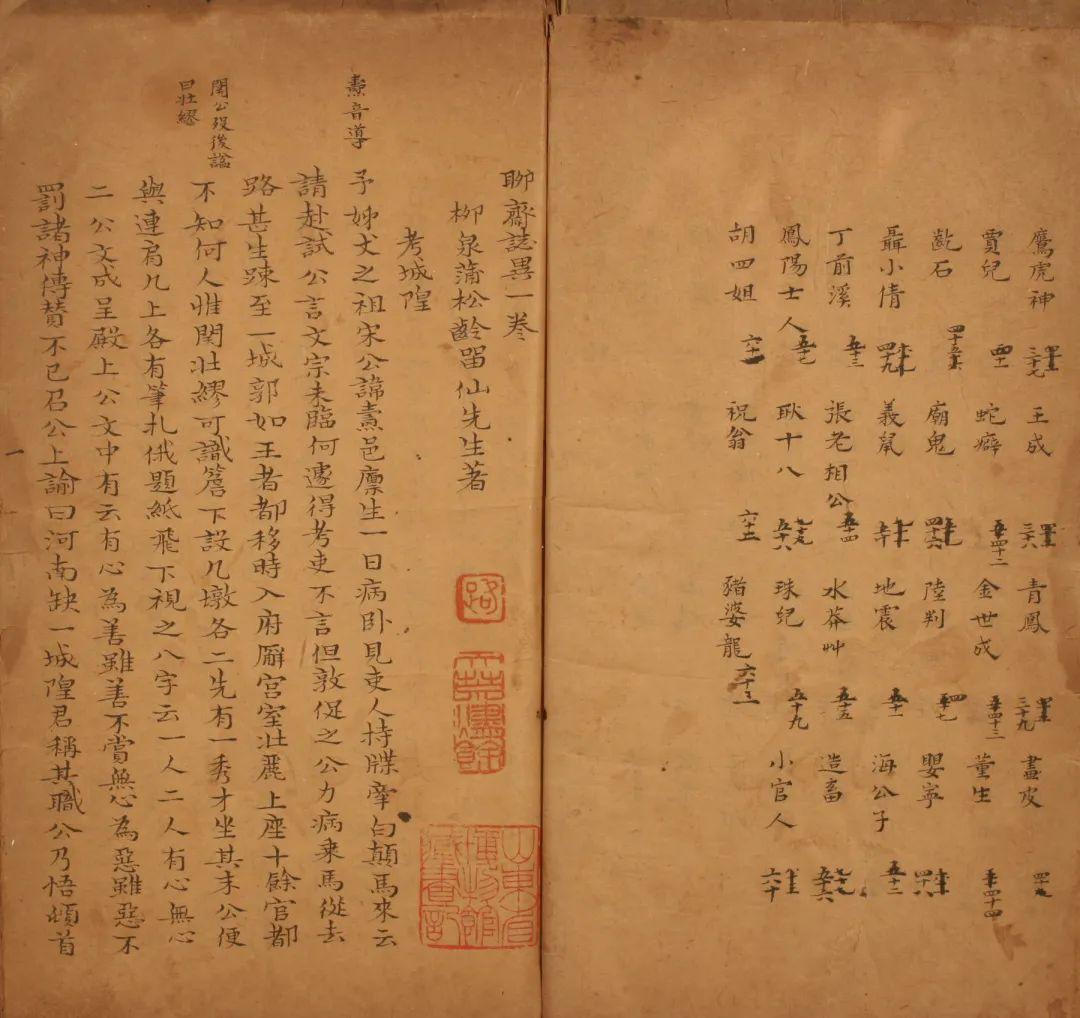 鷹虎神 王成 青鳳 畫皮
賈兒 蛇癖 金世成 董生
齕石 廟鬼 陸判 嬰寧
聶小倩 義鼠 地震 海公子
丁前溪 張老相公 水莽艸 造畜
鳳陽士人 耿十八 珠兒 小官人
胡四姐 六十一 祝翁 六十二 豬婆龍 六十三
聊齋誌異一卷
柳泉蒲松齡畱仙先生著
考城隍
燾音導
予姊丈之祖宋公諱燾邑廪生一日病卧見吏人持牒牽白顛馬來云
請赴試公言文宗未臨何遽得考吏不言但敦促之公力病乘馬從去
路甚生踈至一城郭如王者都移時入府廨宫室壯麗上座十餘官都
關公歿後諡
曰壯繆
不知何人惟関壯繆可識簷下設几墩各二先有一秀才坐其末公便
與連肩几上各有筆札俄題紙飛下視之八字云一人二人有心無心
二公文成呈殿上公文中有云有心為善雖善不賞無心為惡雖惡不
罰諸神傳贊不已召公上諭曰河南缺一城隍君稱其職公乃悟頓首
一
路
山東省
博物館
藏書記